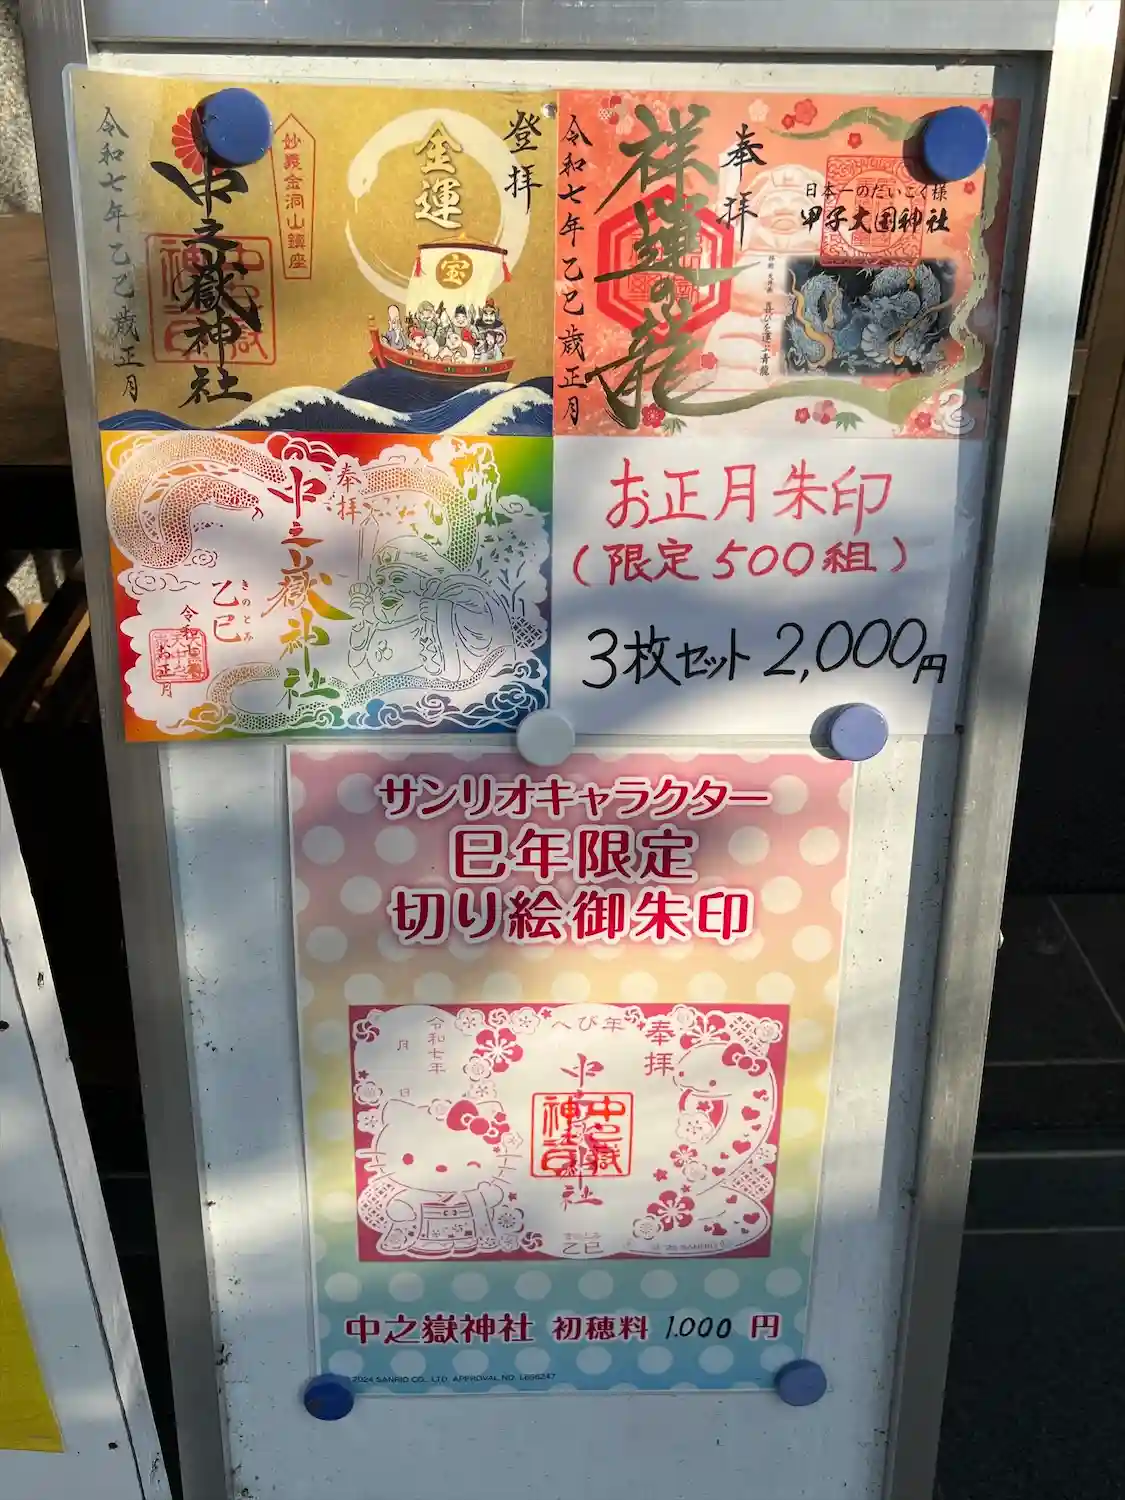 登拝
金運
宝
妙義金洞山鎮座
中之嶽神社
令和七年乙巳歳正月
奉拝
日本一のだいこく様
甲子大国神社
喜びを運ぶ青龍
祥運の龍
令和七年乙巳歳正月
奉拝
中之嶽神社
きのとみ
乙巳
令和七年
お正月
お正月朱印
(限定500組)
3枚セット 2,000円
サンリオキャラクター
巳年限定
切り絵御朱印
奉拝
へび年
中之嶽神社
令和七年
月 日
乙巳
中之嶽神社 初穂料 1.000 円
2024 SANRIO CO., LTD. APPROVAL NO. L656247